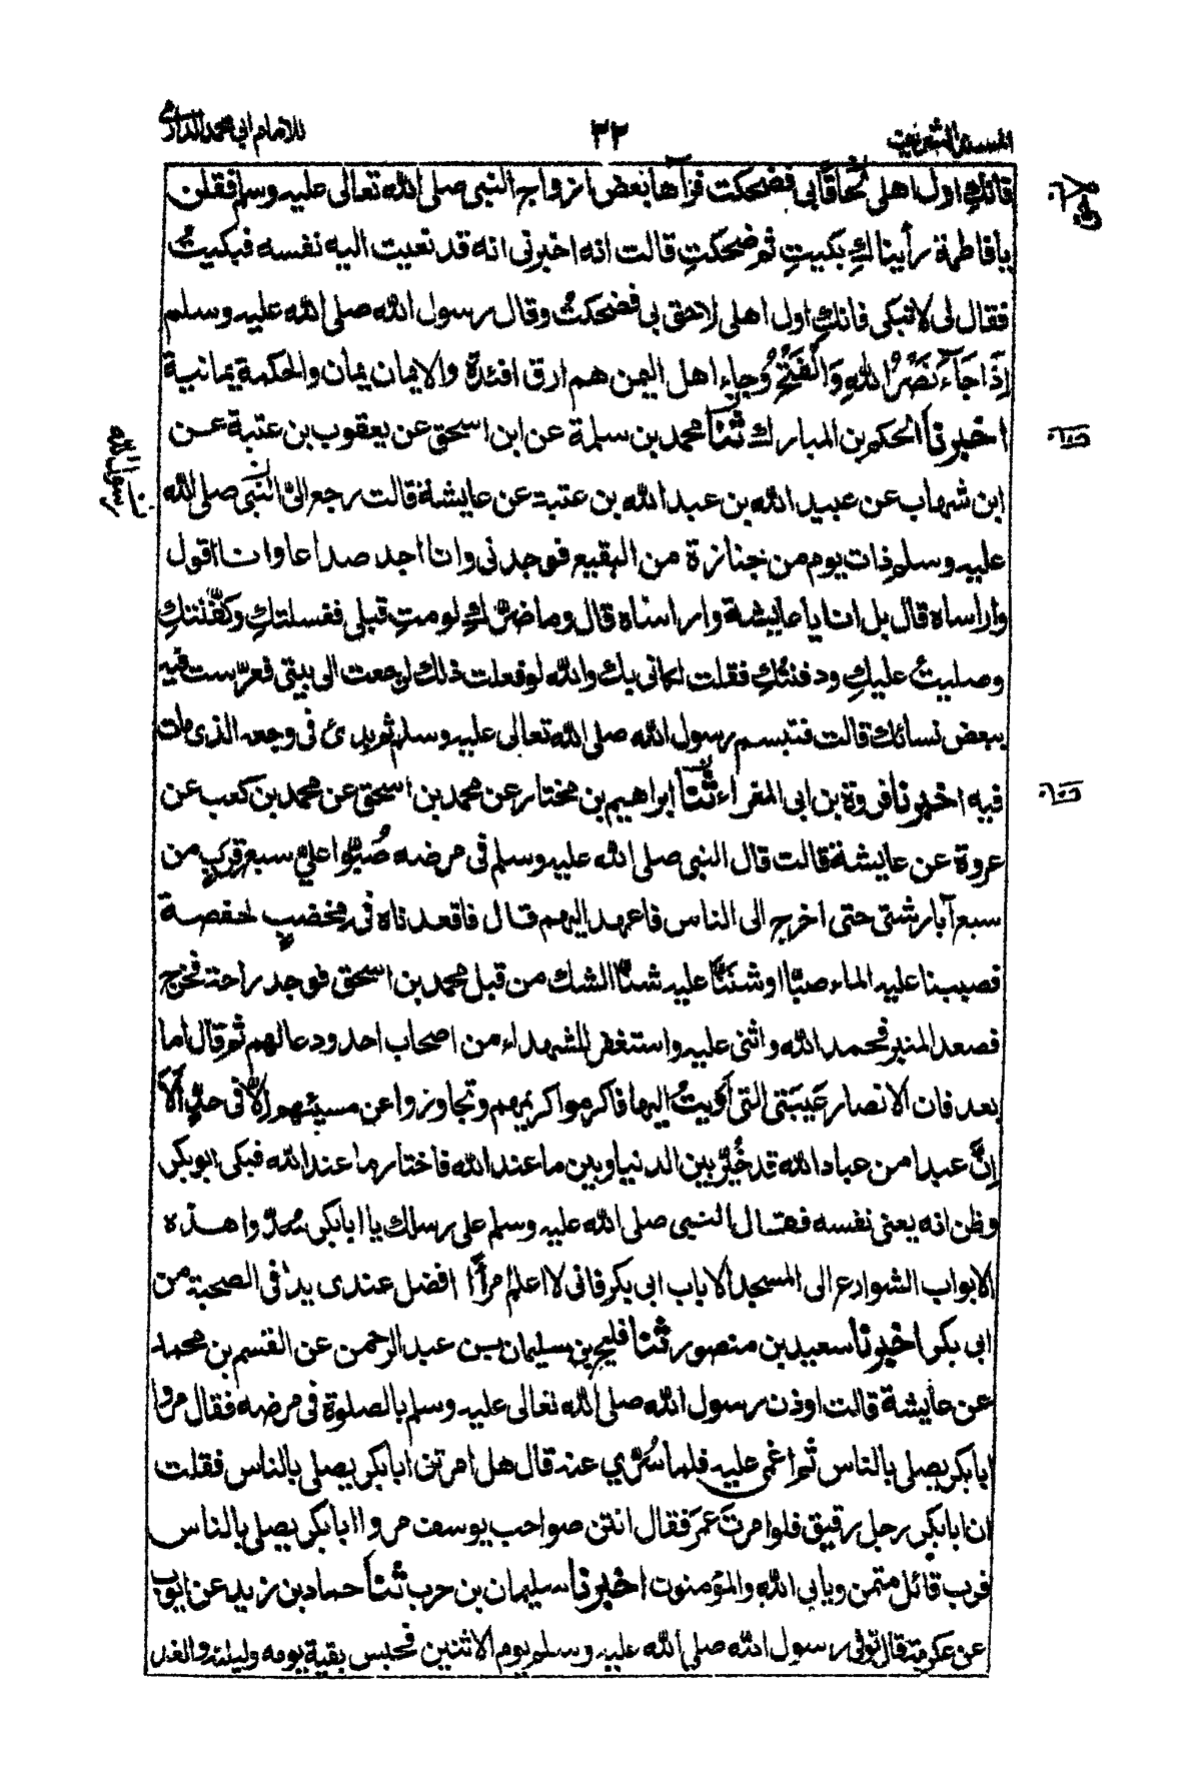 المسند الشريف
٣٢
للامام ابي محمد الدارمي
فانك اول اهلى لحاقا بى فضحكت فرآها بعض ازواج النبى صلى الله تعالى عليه وسلم فقلن
يا فاطمة رأيناكِ بكيتِ ثم ضحكتِ قالت انه اخبرنى انه قد نعيت اليه نفسه فبكيتُ
فقال لى لا تبكى فانكِ اول اهلى لاحق بى فضحكتُ وقال رسول الله صلى الله عليه وسلم
اِذَا جَآءَ نَصْرُ اللهِ وَالْفَتْحُ وجاء اهل اليمن هم ارق افئدة والايمان يمان والحكمة يمانية
اخبرنا الحكم بن المبارك ثنا محمد بن سلمة عن ابن اسحق عن يعقوب بن عتبة عن
ابن شهاب عن عبيد الله بن عبد الله بن عتبة عن عايشة قالت رجع الىّ النبى صلى الله
رسول الله
عليه وسلم ذات يوم من جنازة من البقيع فوجدنى وانا اجد صداعا وانا اقول
وارأساه قال بل انا يا عايشة وارأساه قال وما ضرّكِ لو متِ قبلى فغسلتكِ وكفّنتكِ
وصليتُ عليكِ ودفنتُكِ فقلت لكانى بك والله لو فعلت ذلك لرجعت الى بيتى فعرّست فيه
ببعض نسائك قالت فتبسم رسول الله صلى الله تعالى عليه وسلم ثم بدئ فى وجعه الذى مات
فيه اخبرنا فروة بن ابى المغراء ثنا ابراهيم بن مختار عن محمد بن اسحق عن محمد بن كعب عن
عروة عن عايشة قالت قال النبى صلى الله عليه وسلم فى مرضه صُبّوا علىّ سبع قرب من
سبع آبار شتى حتى اخرج الى الناس فاعهد اليهم قال فاقعدناه فى مخضب لحفصة
فصببنا عليه الماء صبّا او شننّا عليه شنّا الشك من قبل محمد بن اسحق فوجد راحة فخرج
فصعد المنبر فحمد الله واثنى عليه واستغفر للشهداء من اصحاب احد ودعا لهم ثم قال اما
بعد فان الانصار عَيبَتى التى أوَيتُ اليها فاكرموا كريمهم وتجاوزوا عن مسيئهم اِلّا فى حدٍّ اَلَا
اِنَّ عبدا من عباد الله قد خُيّر بين الدنيا وبين ما عند الله فاختار ما عند الله فبكى ابو بكر
وظن انه يعنى نفسه فقال النبى صلى الله عليه وسلم على رسلك يا ابا بكر سُدّوا هذه
الابواب الشوارع الى المسجد الا باب ابى بكر فانى لا اعلم امرأً افضل عندى يدًا فى الصحبة من
ابى بكر اخبرنا سعيد بن منصور ثنا فليح بن سليمان عن عبد الرحمن عن القسم بن محمد
عن عايشة قالت اوذن رسول الله صلى الله تعالى عليه وسلم بالصلوة فى مرضه فقال مروا
ابا بكر يصلى بالناس ثم اغمى عليه فلما سُرّي عنه قال هل امرتن ابا بكر يصلى بالناس فقلت
ان ابا بكر رجل رقيق فلو امرتَ عمرَ فقال انتن صواحب يوسف مروا ابا بكر يصلى بالناس
فرب قائل متمن ويابى الله والمؤمنون اخبرنا سليمان بن حرب ثنا حماد بن زيد عن ايوب
عن عكرمة قال توفى رسول الله صلى الله عليه وسلم يوم الاثنين فحبس بقية يومه وليلته والغد